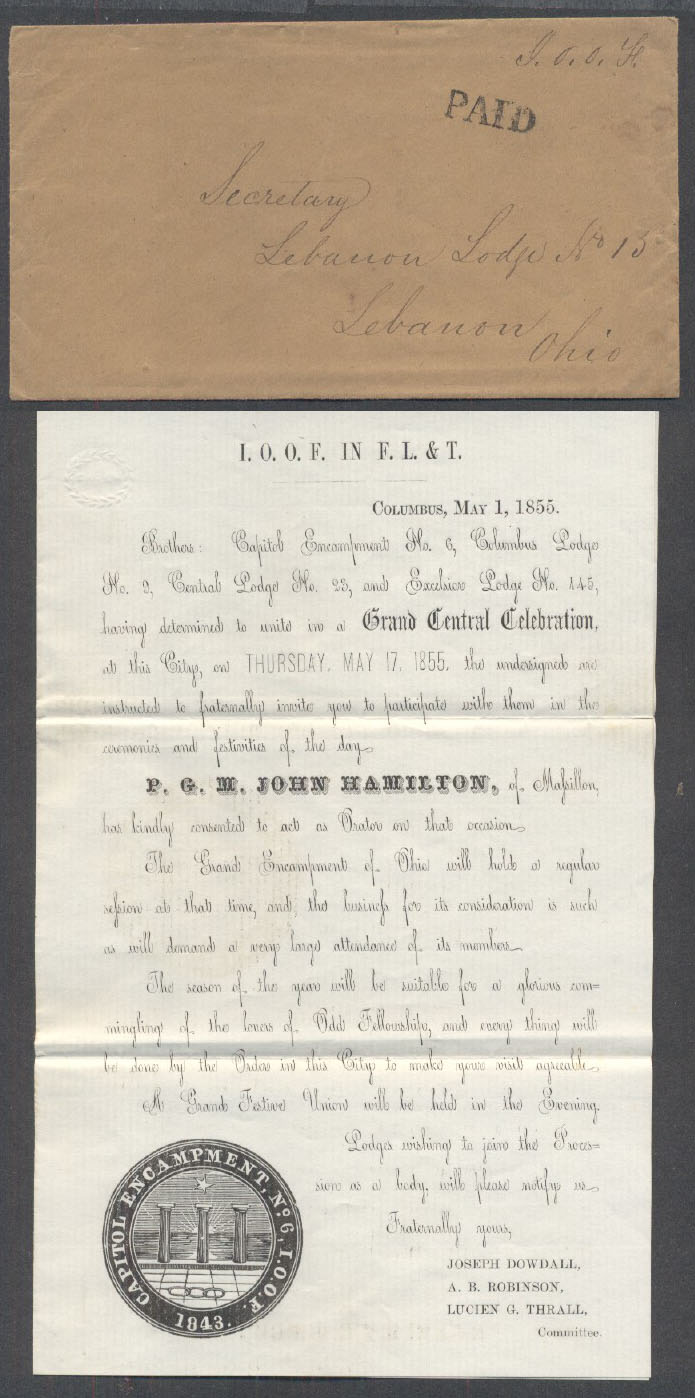 I. O. O. F.
PAID
Secretary
Lebanon Lodge No 13
Lebanon
Ohio
I. O. O. F. IN F. L. & T.
COLUMBUS, MAY 1, 1855.
Brothers: Capitol Encampment No. 6, Columbus Lodge
No. 9, Central Lodge No. 23, and Excelsior Lodge No. 145,
having determined to unite in a Grand Central Celebration,
at this City, on THURSDAY, MAY 17, 1855, the undersigned are
instructed to fraternally invite you to participate with them in the
ceremonies and festivities of the day.
P. G. M. JOHN HAMILTON, of Maſsillon,
has kindly consented to act as Orator on that occasion.
The Grand Encampment of Ohio will hold a regular
seſsion at that time, and the buſineſs for its consideration is such
as will demand a very large attendance of its members.
The season of the year will be suitable for a glorious com=
mingling of the lovers of Odd Fellowship, and every thing will
be done by the Order in this City to make your visit agreeable.
A Grand Festive Union will be held in the Evening.
Lodges wishing to join the Proces=
sion as a body, will please notify us.
Fraternally yours,
JOSEPH DOWDALL,
A. B. ROBINSON,
LUCIEN G. THRALL,
Committee.
CAPITOL ENCAMPMENT, No. 6, I.O.O.F.
1843.